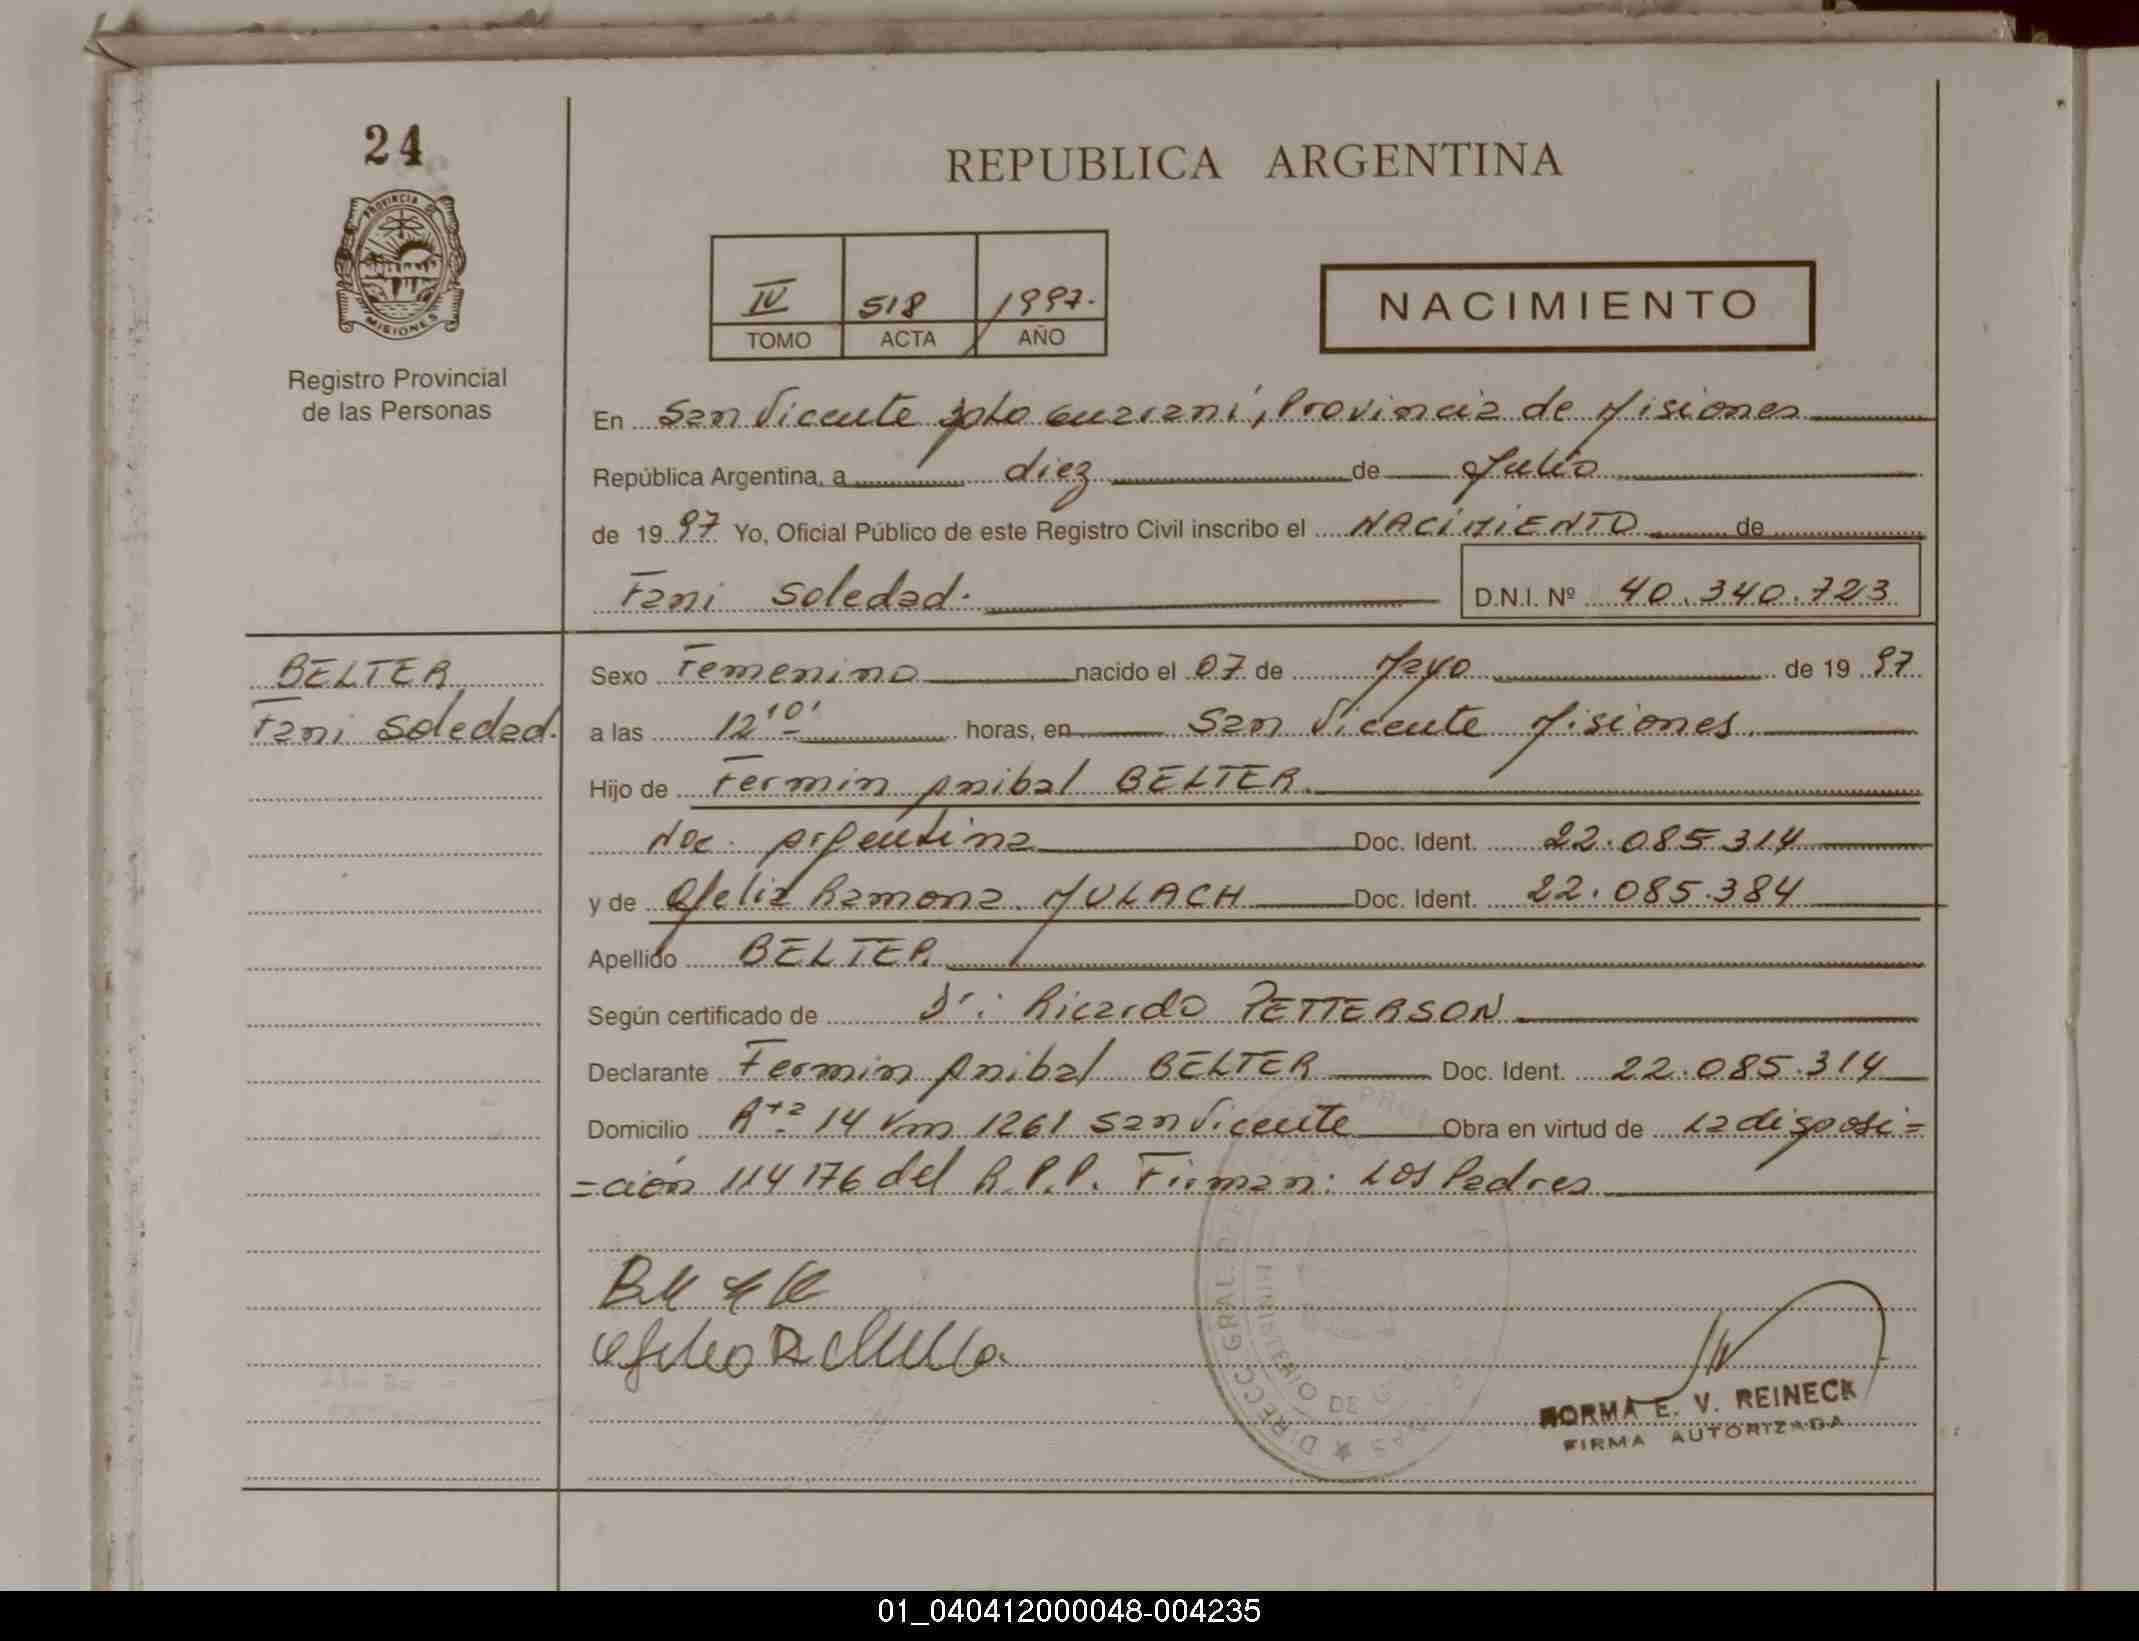 24
PROVINCIA DE
MISIONES
Registro Provincial
de las Personas
REPUBLICA ARGENTINA
IV 518 1997.
TOMO ACTA AÑO
NACIMIENTO
En San Vicente Dpto Guarani, Provincia de Misiones
República Argentina, a diez de Julio
de 1997 Yo, Oficial Público de este Registro Civil inscribo el NACIMIENTO de
Fani Soledad.
D.N.I. Nº 40.340.723
BELTER
Fani Soledad.
Sexo Femenino nacido el 07 de Mayo de 1997
a las 12 10' horas, en San Vicente Misiones
Hijo de Fermin Anibal BELTER
Nac. Argentina Doc. Ident. 22.085.314
y de Ofelia Ramona MULACH Doc. Ident. 22.085.384
Apellido BELTER
Según certificado de Dr: Ricardo PETTERSON
Declarante Fermin Anibal BELTER Doc. Ident. 22.085.314
Domicilio Rta 14 Km 1261 San Vicente Obra en virtud de la disposi=
=ción 114176 del R.P.P. Firman: Los Padres
DIRECC. GRAL. DE
MINISTERIO DE
NORMA E. V. REINECK
FIRMA AUTORIZADA
01_040412000048-004235